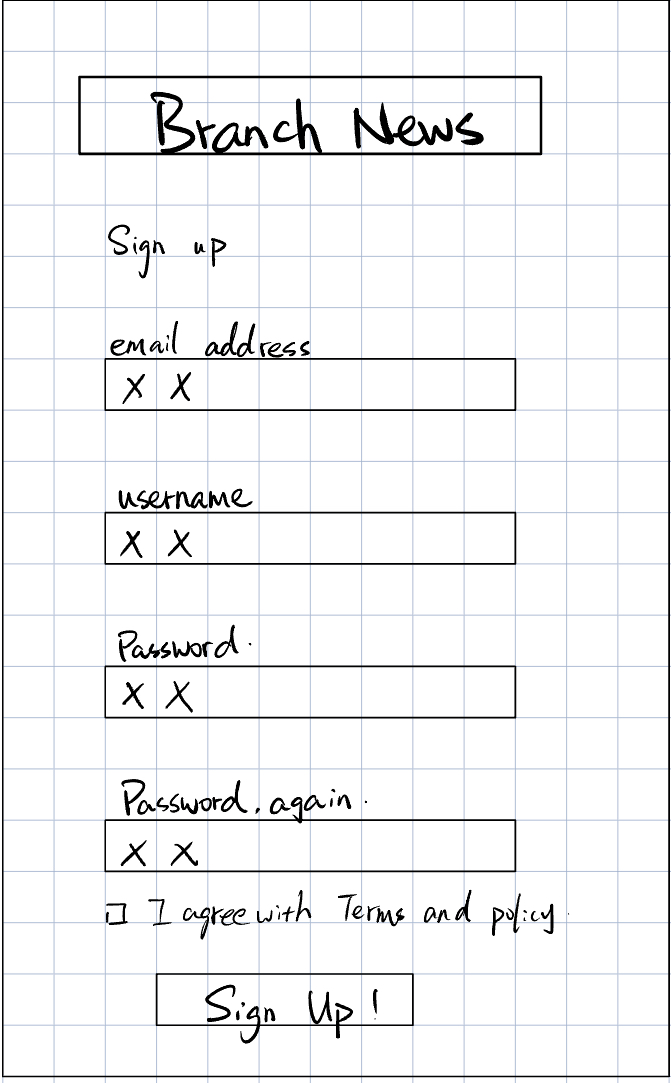 Branch News
Sign up
email address
X X
username
X X
Password.
X X
Password, again.
X X
I agree with Terms and policy.
Sign Up!